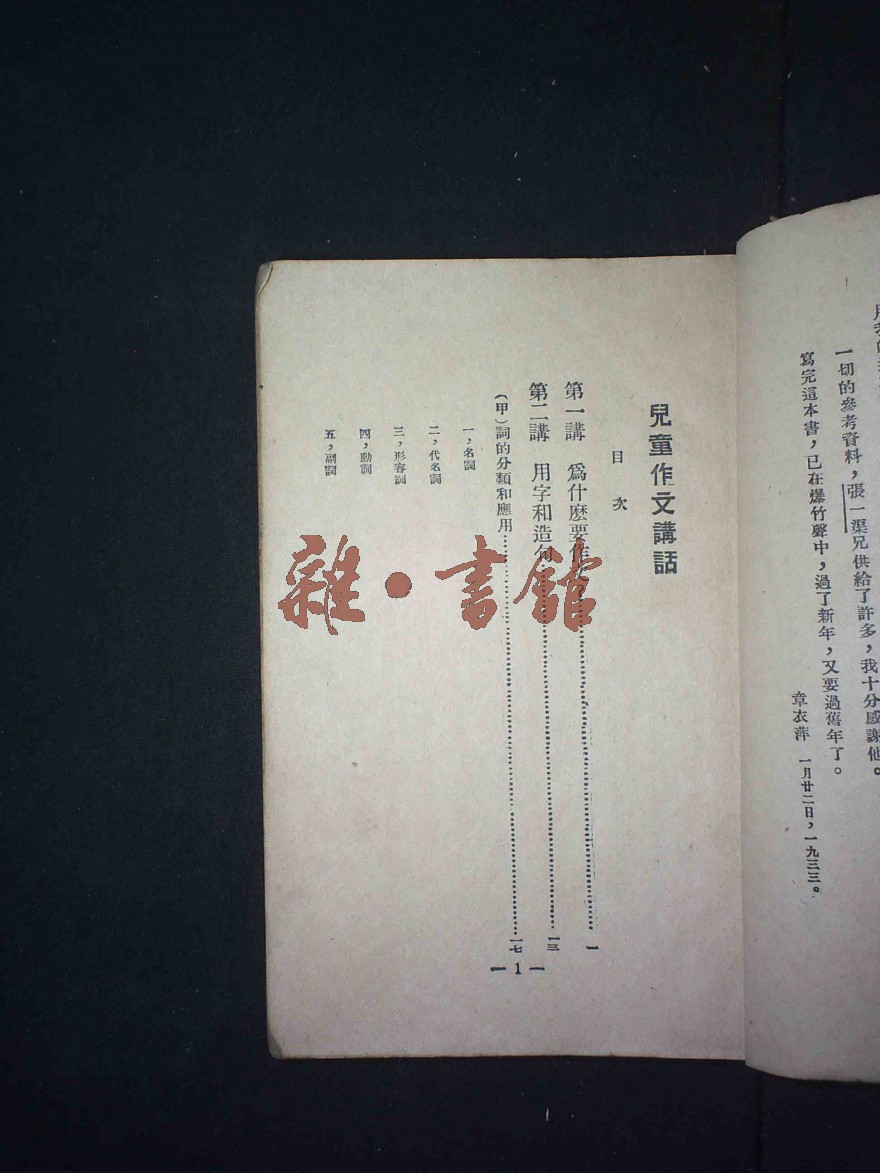 一切的參考資料，張一渠兄供給了許多，我十分感謝他。
寫完這本書，已在爆竹聲中，過了新年，又要過舊年了。
章衣萍 一月廿二日，一九三三。
兒童作文講話
目次
第一講 爲什麽要作……一
第二講 用字和造句……一三
（甲）詞的分類和應用……一七
一，名詞
二，代名詞
三，形容詞
四，動詞
五，副詞
— 1 —
雜·書館